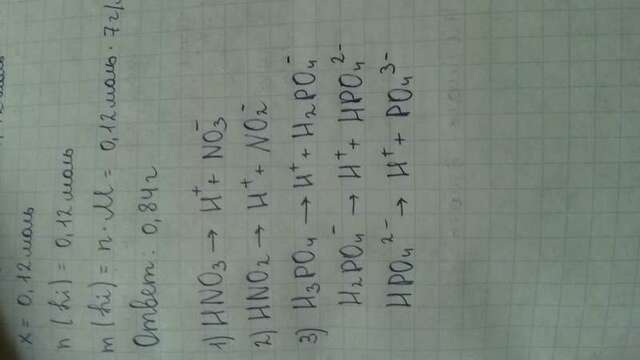 x = 0,12 моль
n (Li) = 0,12 моль
m (Li) = n · M = 0,12 моль · 7 г/
Ответ: 0,84 г
1) HNO₃ → H⁺ + NO₃⁻
2) HNO₂ → H⁺ + NO₂⁻
3) H₃PO₄ → H⁺ + H₂PO₄⁻
H₂PO₄⁻ → H⁺ + HPO₄²⁻
HPO₄²⁻ → H⁺ + PO₄³⁻